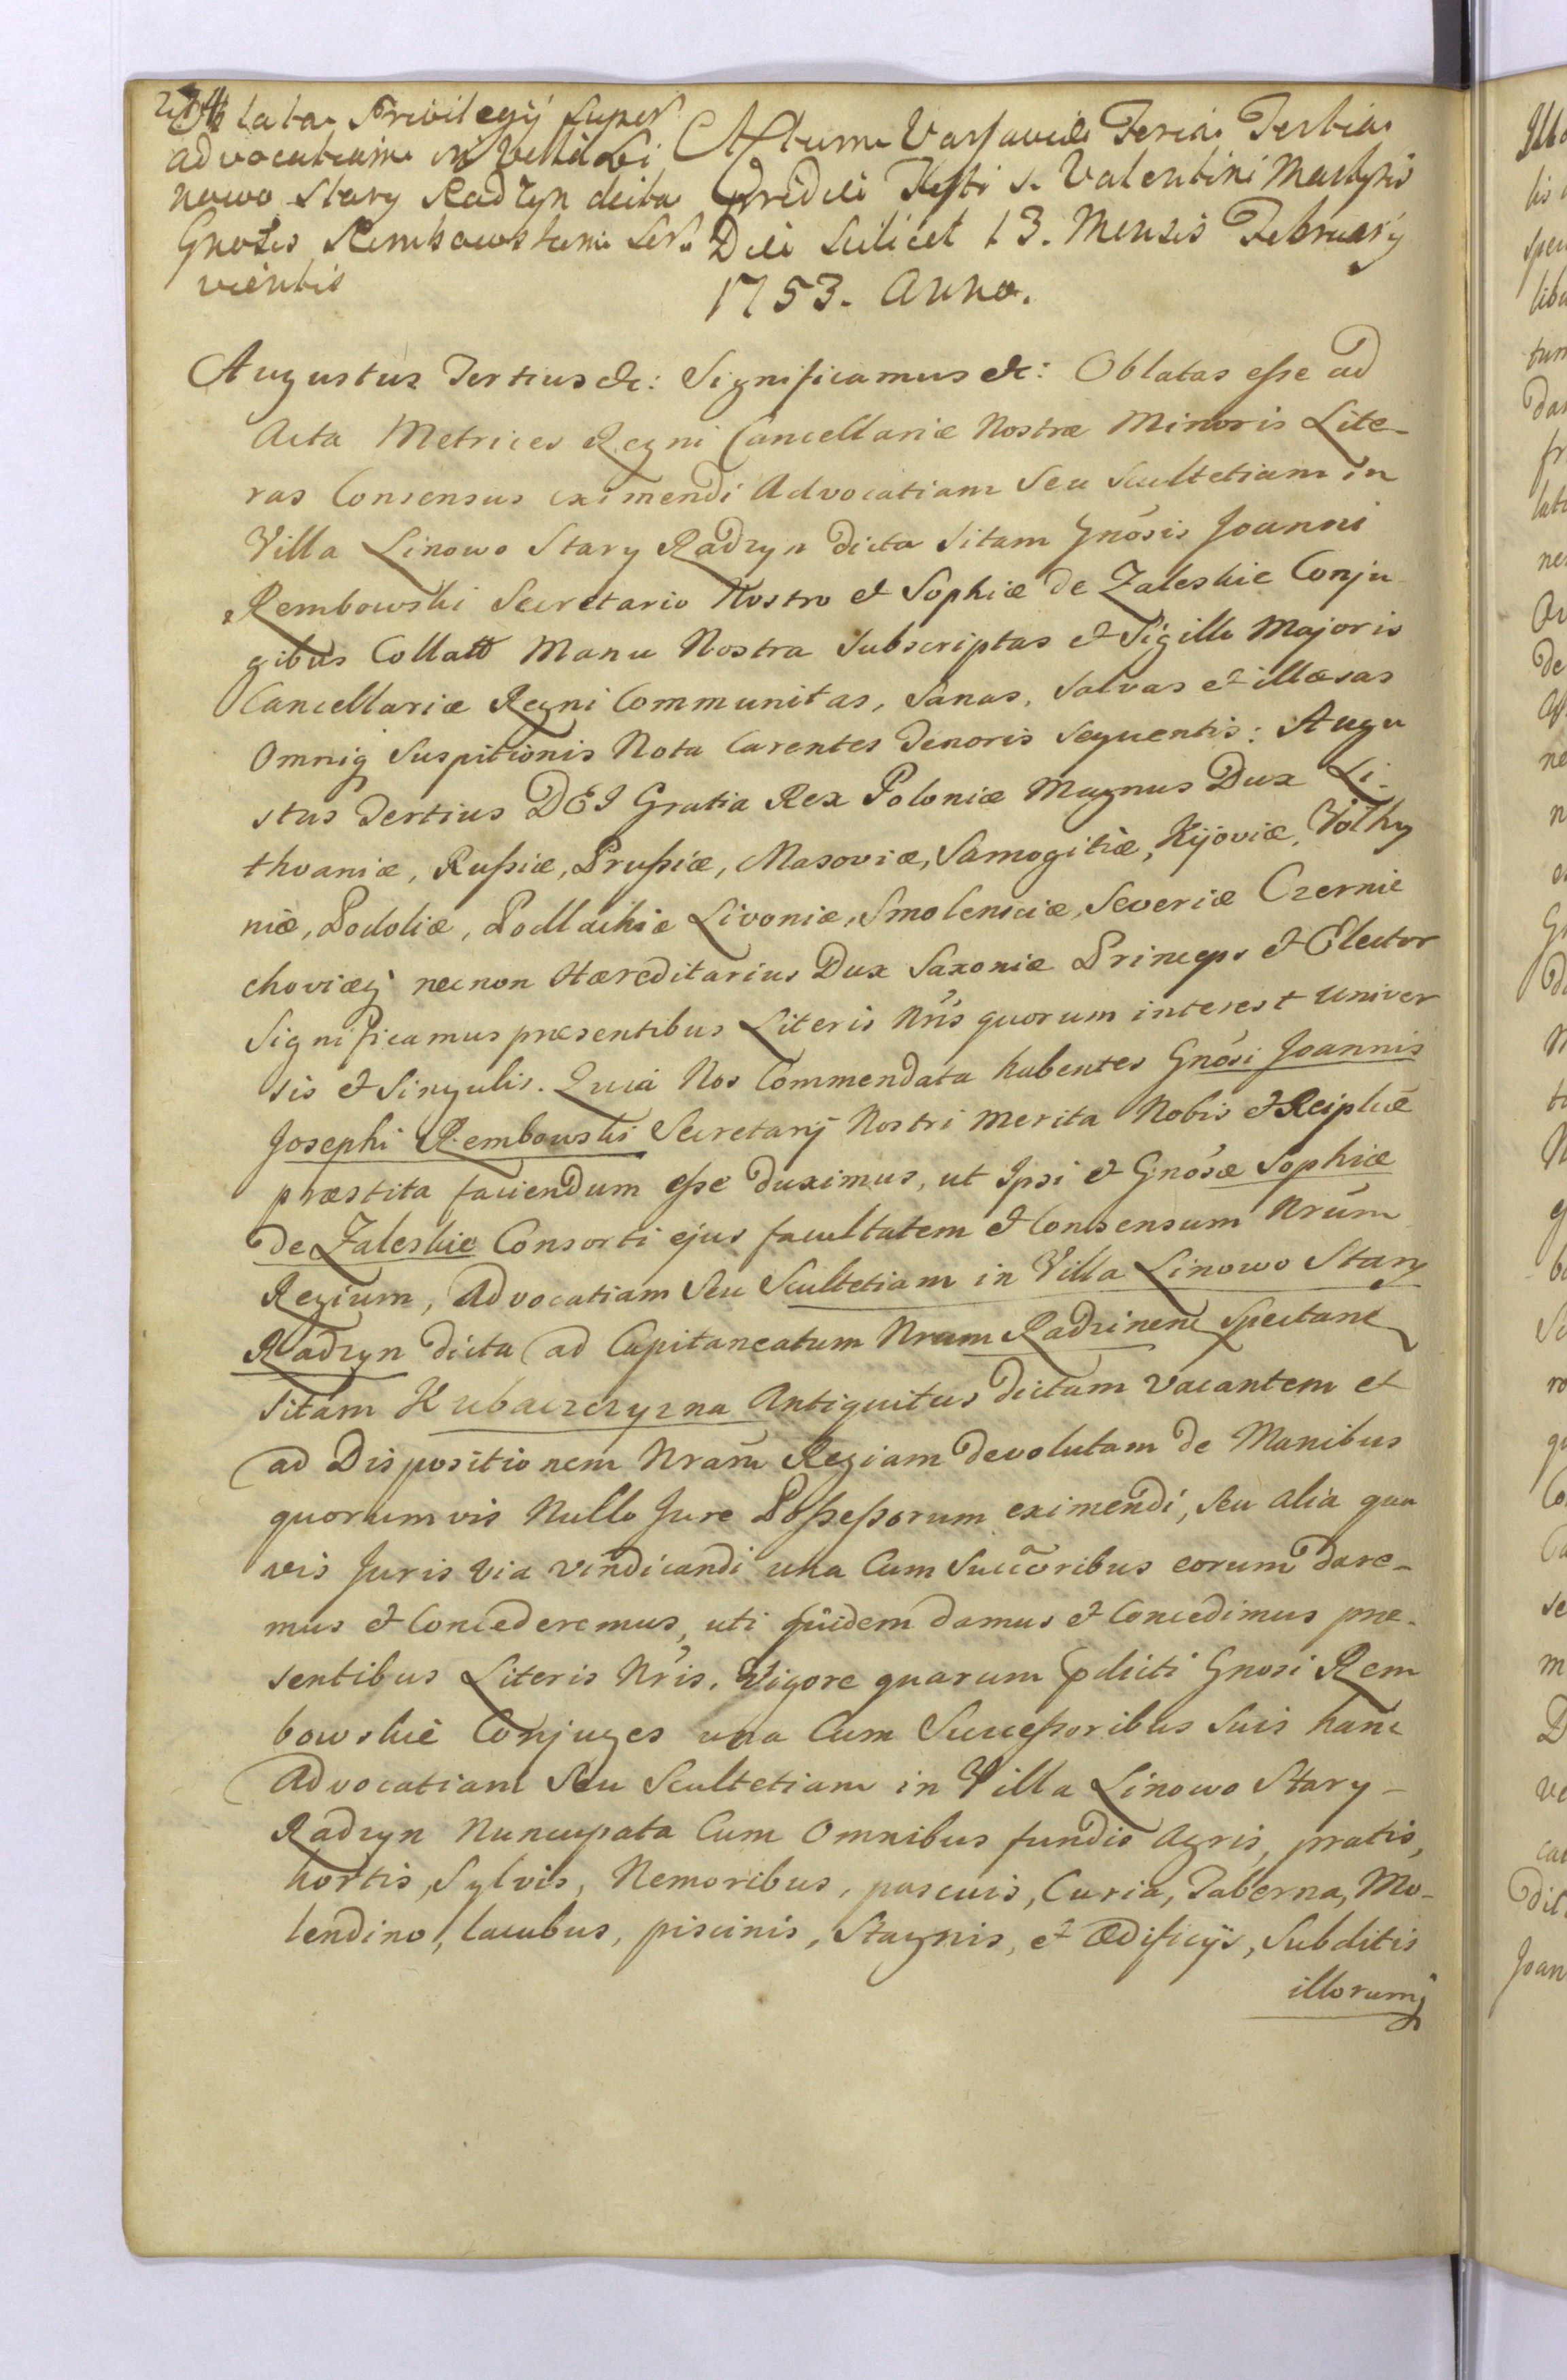 Oblata Privilegij super
advocatiam in Villa Li
nowo Stary Radzyn dicta
Gnosis Rembowskim ser
vientis
Actum Varsaviæ Feria Tertia
Pridie Festi S. Valentini Martyris
Die Scilicet 13. Mensis February
1753. Anno.
Augustus Tertius &c: Significamus &c: Oblatas esse ad
Acta Metrices Regni Cancellariæ Nostræ Minoris Lite-
ras Consensus eximendi Advocatiam Seu Scultetiam in
Villa Linowo Stary Radzyn dicta Sitam Gnosis Joanni
Rembowski Secretario Nostro et Sophiæ de Zaleskie Conju
gibus Collatt Manu Nostra Subscriptas et Sigillo Majoris
Cancellariæ Regni Communitas, Sanas, Salvas et illæsas
Omniq Suspitionis Nota Carentes Tenoris Sequentis: Augu
stus Tertius DEI Gratia Rex Poloniæ Magnus Dux Li-
thvaniæ, Russiæ, Prussiæ, Masoviæ, Samogitiæ, Kijoviæ, Volhy
niæ, Podoliæ, Podlachiæ Livoniæ, Smolensciæ, Severiæ Czernie
choviæq necnon Hæreditarius Dux Saxoniæ Princeps et Elector
Significamus præsentibus Literis Nris quorum interest Univer
sis et Singulis. Quia Nos Commendata habentes Gnosi Joannis
Josephi Rembowski Secretarij Nostri Merita Nobis et Reiplicæ
præstita faciendum esse duximus, ut Ipsi et Gnosæ Sophiæ
de Zaleskie Consorti ejus facultatem et Consensum Nrum
Regium, Advocatiam Seu Scultetiam in Villa Linowo Stary
Radzyn dicta ad Capitaneatum Nrum Radzinen Spectan
Sitam Kubaczczyzna Antiquitus dictam vacantem et
ad Dispositionem Nram Regiam devolutam de Manibus
quorumvis Nullo Jure Possessorum eximendi, Seu alia qua
vis Juris Via vindicandi una Cum Succoribus eorum dare-
mus et Concederemus, uti quidem damus et Concedimus præ-
sentibus Literis Nris. Vigore quarum pdicti Gnosi Rem
bowskie Conjuges una Cum Successoribus Suis hanc
Advocatiam Seu Scultetiam in Villa Linowo Stary-
Radzyn Nuncupata Cum Omnibus fundis Agris, pratis,
hortis, Sylvis, Nemoribus, pascuis, Curia, Taberna, Mo-
lendino, lacubus, piscinis, Stagnis, et Ædificijs, Subditis
illorumq